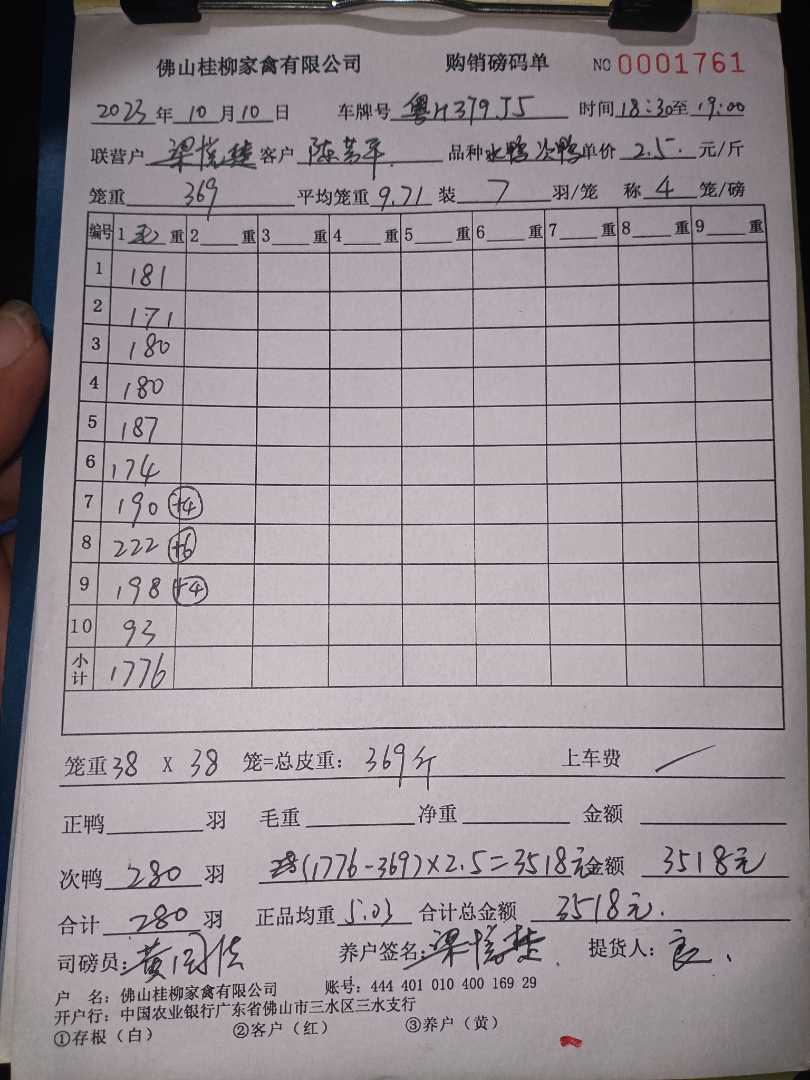 佛山桂柳家禽有限公司 购销磅码单 NO 0001761
2023年10月10日 车牌号 粤H379J5 时间18:30至19:00
联营户 梁悦楚 客户 陈芳平 品种水鸭次鸭单价 2.5. 元/斤
笼重 369 平均笼重 9.71 装 7 羽/笼 称 4 笼/磅
编号 1 毛 重 2 重 3 重 4 重 5 重 6 重 7 重 8 重 9 重
1 181
2 171
3 180
4 180
5 187
6 174
7 190 +4
8 222 +6
9 198 +4
10 93
小计 1776
笼重38 X 38 笼=总皮重: 369斤 上车费 /
正鸭 羽 毛重 净重 金额
次鸭 280 羽 (1776-369)×2.5=3518元 金额 3518元
合计 280 羽 正品均重 5.03 合计总金额 3518元.
司磅员: 黄 养户签名: 梁悦楚 提货人: 良.
户 名: 佛山桂柳家禽有限公司 账号: 444 401 010 400 169 29
开户行: 中国农业银行广东省佛山市三水区三水支行
①存根（白） ②客户（红） ③养户（黄）